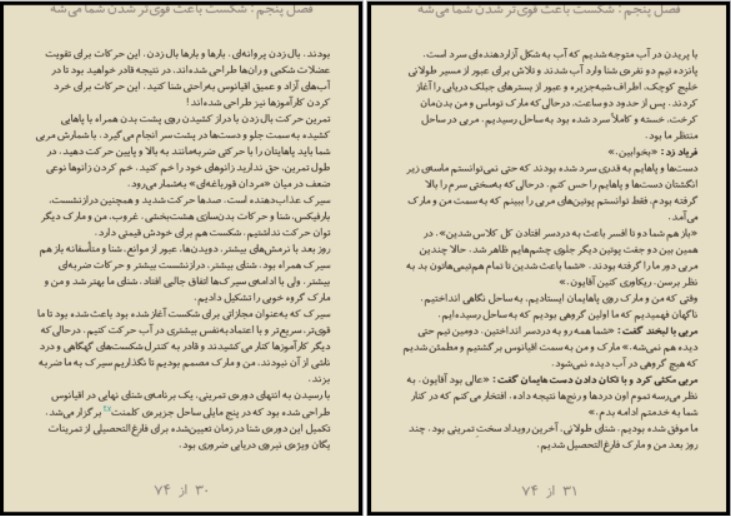 فصل پنجم : شکست باعث قوی‌تر شدن شما می‌شه
بودند. بال‌زدن پروانه‌ای، بارها و بارها بال زدن. این حرکات برای تقویت
عضلات شکمی و ران‌ها طراحی شده‌اند. در نتیجه قادر خواهید بود تا در
آب‌های آزاد و عمیق اقیانوس به‌راحتی شنا کنید. این حرکات برای خرد
کردن کارآموزها نیز طراحی شده‌اند!
تمرین حرکت بال زدن با دراز کشیدن روی پشت بدن همراه با پاهایی
کشیده به سمت جلو و دست‌ها در پشت سر انجام می‌گیرد. با شمارش مربی
شما باید پاهایتان را با حرکتی ضربه‌مانند به بالا و پایین حرکت دهید. در
طول تمرین، حق ندارید زانوهای خود را خم کنید. خم کردن زانوها نوعی
ضعف در میان «مردان قورباغه‌ای» به‌شمار می‌رود.
سیرک عذاب‌دهنده است. صدها حرکت شدید و همچنین درازنشست،
بارفیکس، شنا و حرکات بدنسازی هشت‌بخشی. غروب، من و مارک دیگر
توان حرکت نداشتیم. شکست هم برای خودش قیمتی دارد.
روز بعد با نرمش‌های بیشتر، دویدن‌ها، عبور از موانع، شنا و متأسفانه باز هم
سیرک همراه بود. شنای بیشتر، درازنشست بیشتر و حرکات ضربه‌ای
بیشتر. ولی با ادامه‌ی سیرک‌ها اتفاق جالبی افتاد. شنای ما بهتر شد و من و
مارک گروه خوبی را تشکیل دادیم.
سیرک که به‌عنوان مجازاتی برای شکست آغاز شده بود باعث شده بود تا ما
قوی‌تر، سریع‌تر و با اعتمادبه‌نفس بیشتری در آب حرکت کنیم. درحالی‌که
دیگر کارآموزها کنار می‌کشیدند و قادر به کنترل شکست‌های گهگاهی و درد
ناشی از آن نبودند، من و مارک مصمم بودیم تا نگذاریم سیرک به ما ضربه
بزند.
با رسیدن به انتهای دوره‌ی تمرینی، یک برنامه‌ی شنای نهایی در اقیانوس
طراحی شده بود که در پنج مایلی ساحل جزیره‌ی کلمنت برگزار می‌شد.
تکمیل این دوره‌ی شنا در زمان تعیین‌شده برای فارغ‌التحصیلی از تمرینات
یگان ویژه‌ی نیروی دریایی ضروری بود.
۳۰ از ۷۴
فصل پنجم : شکست باعث قوی‌تر شدن شما می‌شه
با پریدن در آب متوجه شدیم که آب به‌شکل آزاردهنده‌ای سرد است.
پانزده تیم دو نفره‌ی شنا وارد آب شدند و تلاش برای عبور از مسیر طولانی
خلیج کوچک، اطراف شبه‌جزیره و عبور از بسترهای جلبک دریایی را آغاز
کردند. پس از حدود دو ساعت، درحالی‌که مارک توماس و من بدن‌مان
کرخت، خسته و کاملاً سرد شده بود به ساحل رسیدیم. مربی در ساحل
منتظر ما بود.
فریاد زد: «بخوابین.»
دست‌ها و پاهایم به قدری سرد شده بودند که حتی نمی‌توانستم ماسه‌ی زیر
انگشتان دست‌ها و پاهایم را حس کنم. درحالی‌که به‌سختی سرم را بالا
گرفته بودم، فقط توانستم پوتین‌های مربی را ببینم که به سمت من و مارک
می‌آمد.
«باز هم شما دو تا افسر باعث به دردسر افتادن کل کلاس شدین». در
همین بین دو جفت پوتین دیگر جلوی چشم‌هایم ظاهر شد. حالا چندین
مربی دور ما را گرفته بودند. «شما باعث شدین تا تمام هم‌تیمی‌هاتون بد به
نظر برسن. ریکاوری کنین آقایون.»
وقتی که من و مارک روی پاهایمان ایستادیم، به ساحل نگاهی انداختیم.
ناگهان فهمیدیم که ما اولین گروهی بودیم که به ساحل رسیده‌ایم.
مربی با لبخند گفت: «شما همه رو به دردسر انداختین. دومین تیم حتی
دیده هم نمی‌شه.» مارک و من به سمت اقیانوس برگشتیم و مطمئن شدیم
که هیچ گروهی در آب دیده نمی‌شود.
مربی مکثی کرد و با تکان دادن دست هایمان گفت: «عالی بود آقایون. به
نظر می‌رسه تموم اون دردها و رنج‌ها نتیجه داده. افتخار می کنم که در کنار
شما به خدمتم ادامه بدم.»
ما موفق شده بودیم. شنای طولانی، آخرین رویداد سخت تمرینی بود. چند
روز بعد من و مارک فارغ‌التحصیل شدیم.
۳۱ از ۷۴